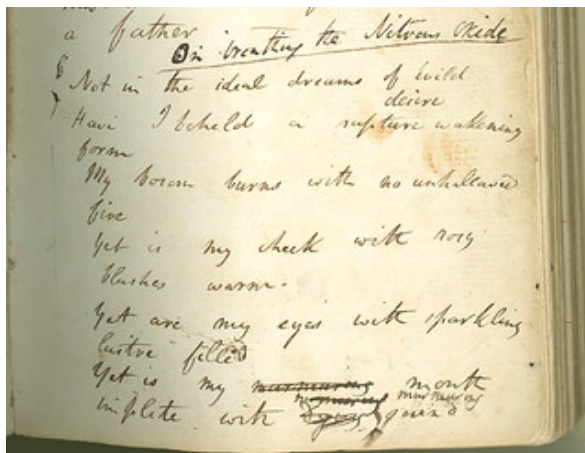 a father
On breathing the Nitrous Oxide
Not in the ideal dreams of wild
desire
Have I beheld a rapture wakening
form
My bosom burns with no unhallowed
fire
Yet is my cheek with rosy
blushes warm.
Yet are my eyes with sparkling
lustre filled
Yet is my murmuring mouth
murmuring
implete with